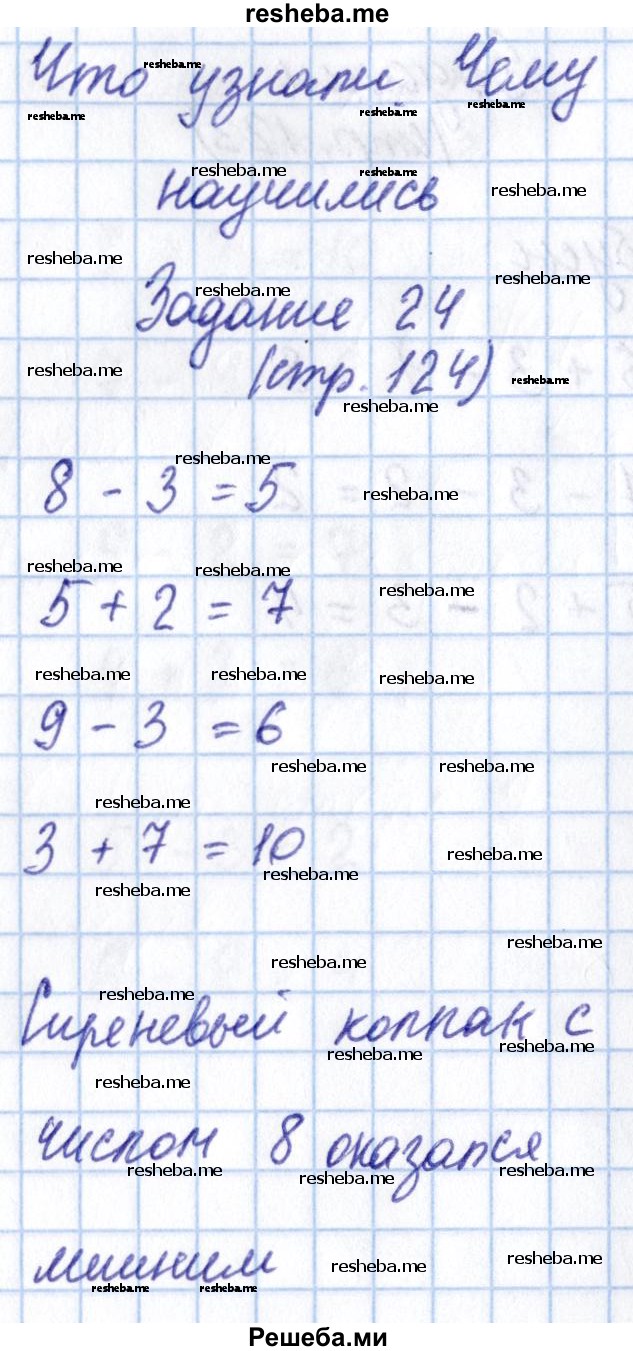 resheba.me
Что узнали. Чему
научились
Задание 24
(стр. 124)
8 - 3 = 5
5 + 2 = 7
9 - 3 = 6
3 + 7 = 10
Сиреневый колпак с
числом 8 оказался
лишним
Решеба.ми